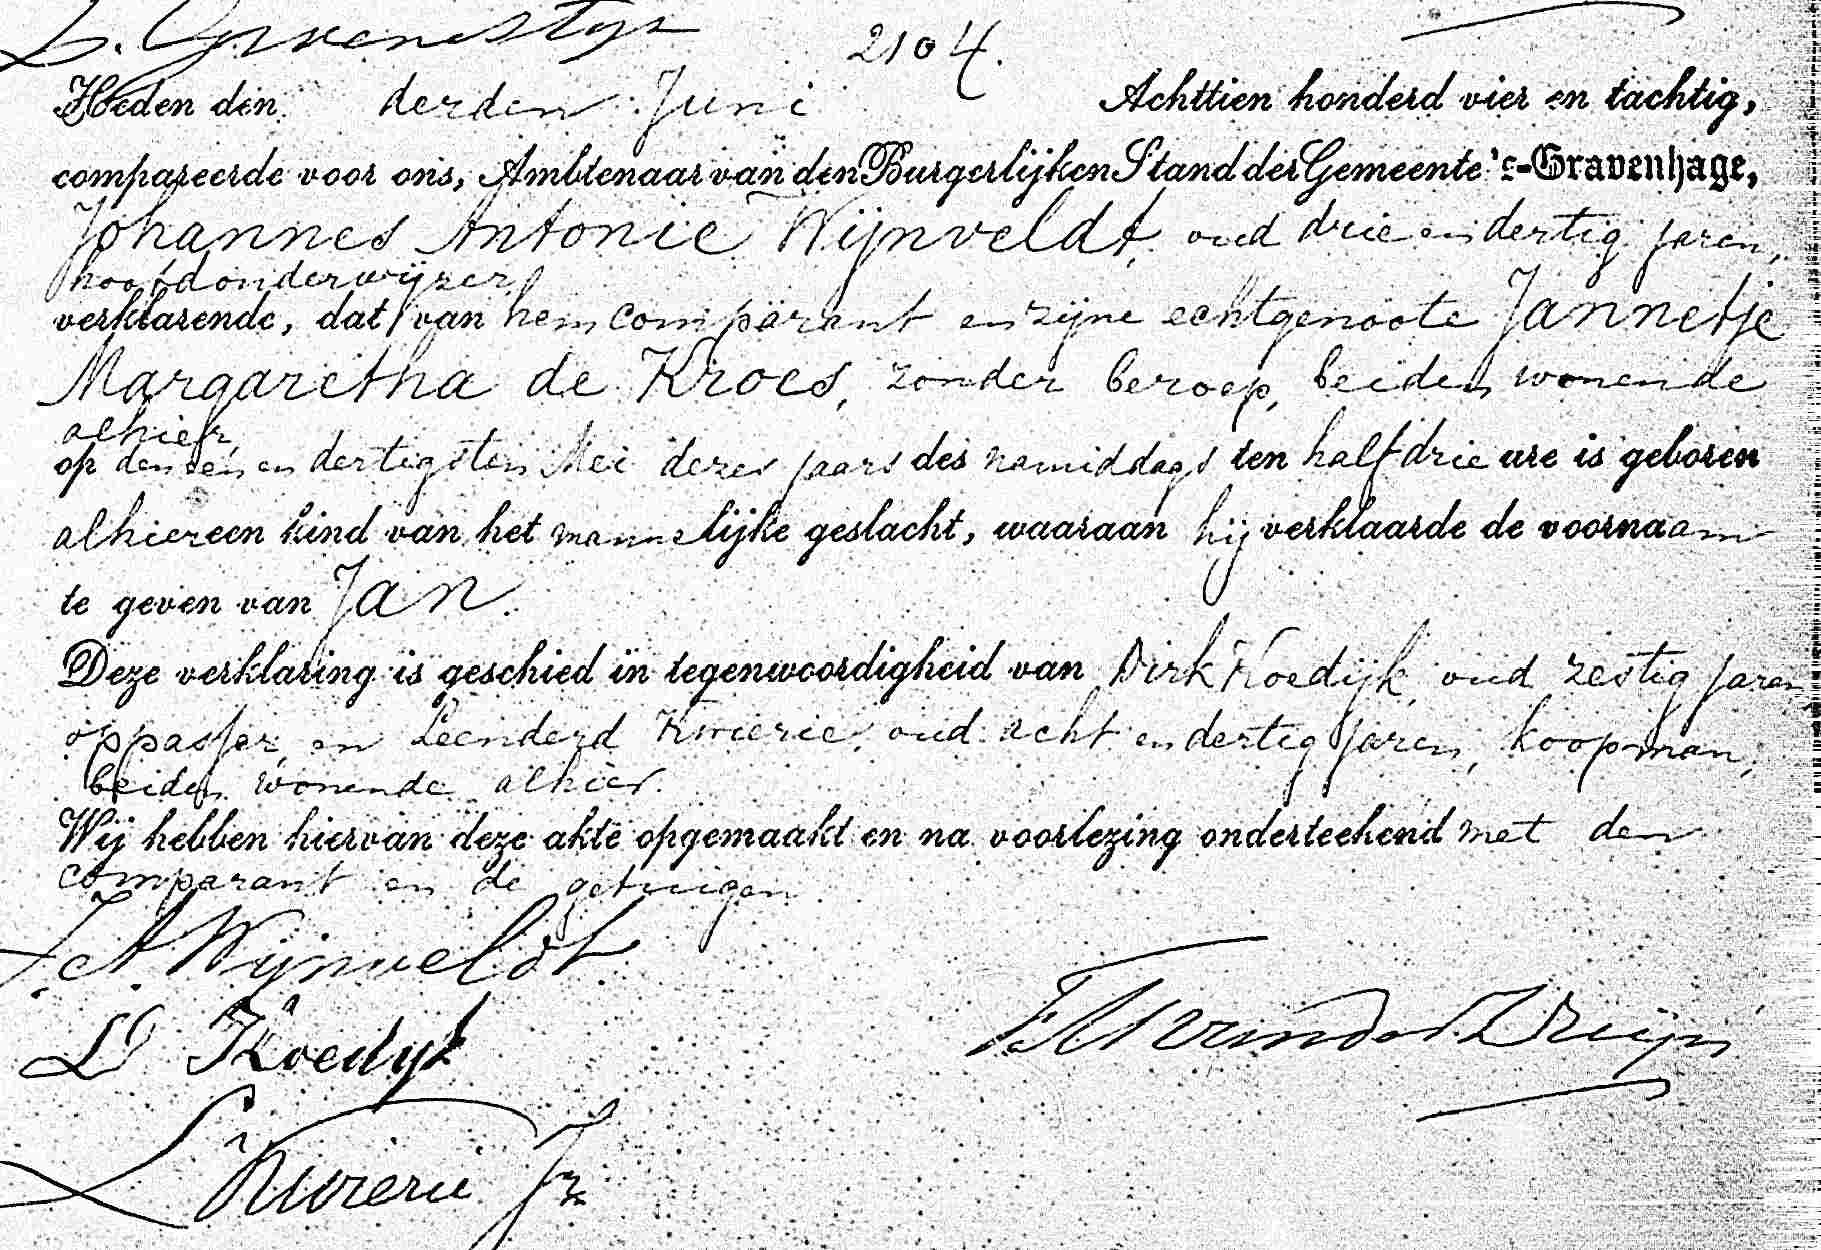 2104.
Heden den derden Juni Achttien honderd vier en tachtig,
compareerde voor ons, Ambtenaar van den Burgerlijken Stand der Gemeente 's-Gravenhage,
Johannes Antonie Wijnveldt, oud drie en dertig jaren,
hoofdonderwijzer,
verklarende, dat van hem comparant en zijne echtgenoote Jannetje
Margaretha de Kroes, zonder beroep, beiden wonende
alhier,
op den een en dertigsten Mei dezes jaars des namiddags ten half drie ure is geboren
alhier een kind van het mannelijke geslacht, waaraan hij verklaarde de voornaam
te geven van Jan.
Deze verklaring is geschied in tegenwoordigheid van Dirk Koedijk, oud zestig jaren,
oppasser, en Leenderd Kwierie, oud acht en dertig jaren, koopman,
beiden wonende alhier.
Wij hebben hiervan deze akte opgemaakt en na voorlezing onderteekend met den
comparant en de getuigen
J A Wijnveldt
D Koedijk
L Kwierie Jz